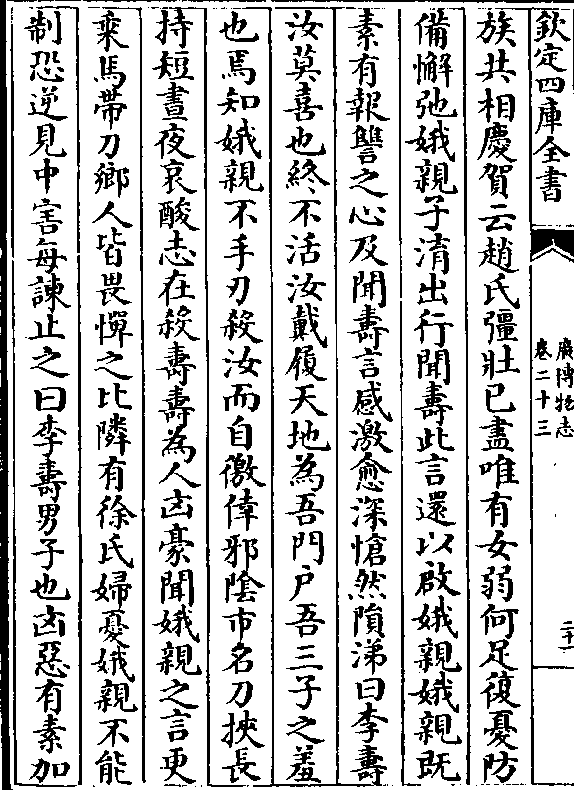 欽定四庫全書
廣博物志
卷二十三
二十一
族共相慶賀云趙氏彊壯已盡唯有女弱何足復憂防
備懈弛娥親子淯出行聞壽此言還以啟娥親娥親既
素有報讐之心及聞壽言感激愈深愴然隕涕曰李壽
汝莫喜也終不活汝戴履天地為吾門户吾三子之羞
也焉知娥親不手刃殺汝而自儌倖邪陰市名刀挾長
持短晝夜哀酸志在殺壽壽為人凶豪聞娥親之言更
乘馬帶刀鄉人皆畏憚之比隣有徐氏婦憂娥親不能
制恐逆見中害每諫止之曰李壽男子也凶惡有素加